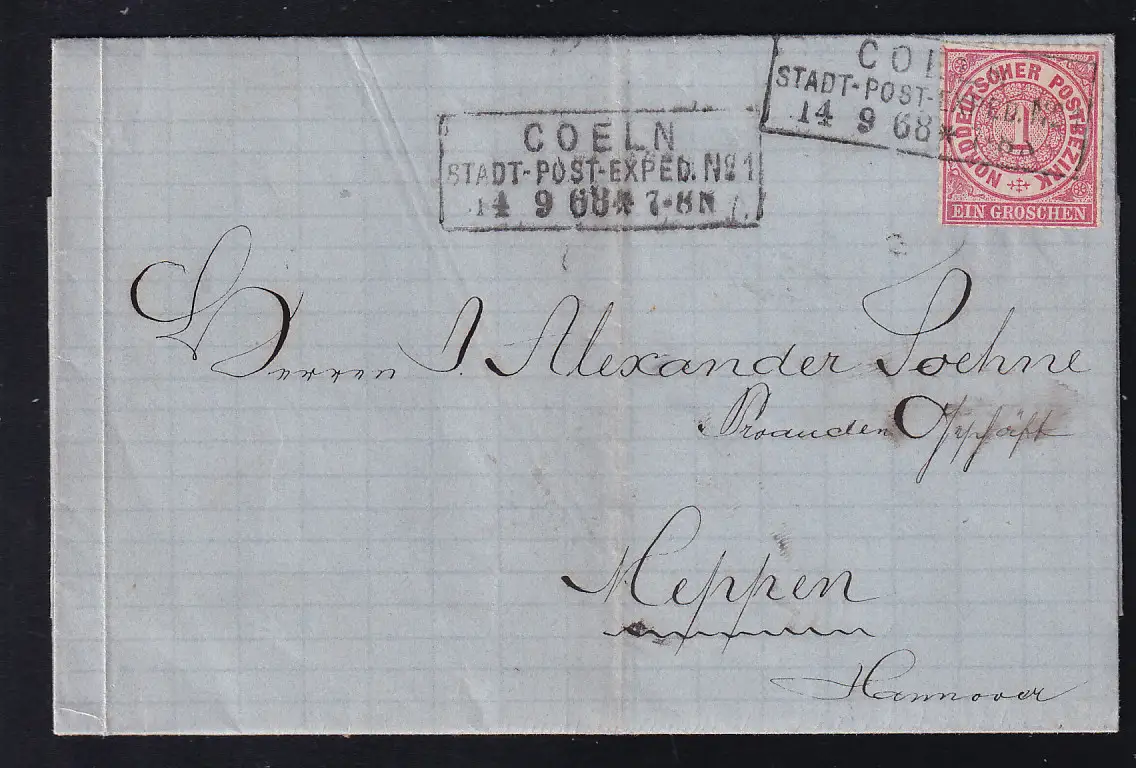 COELN
STADT-POST-EXPED. № 1
14 9 68 * 7-8 N
STADT-POST-
14 9 68 *
NORDDEUTSCHER POSTBEZIRK
1
EIN GROSCHEN
Herren J. Alexander Soehne
Meppen
Hannover